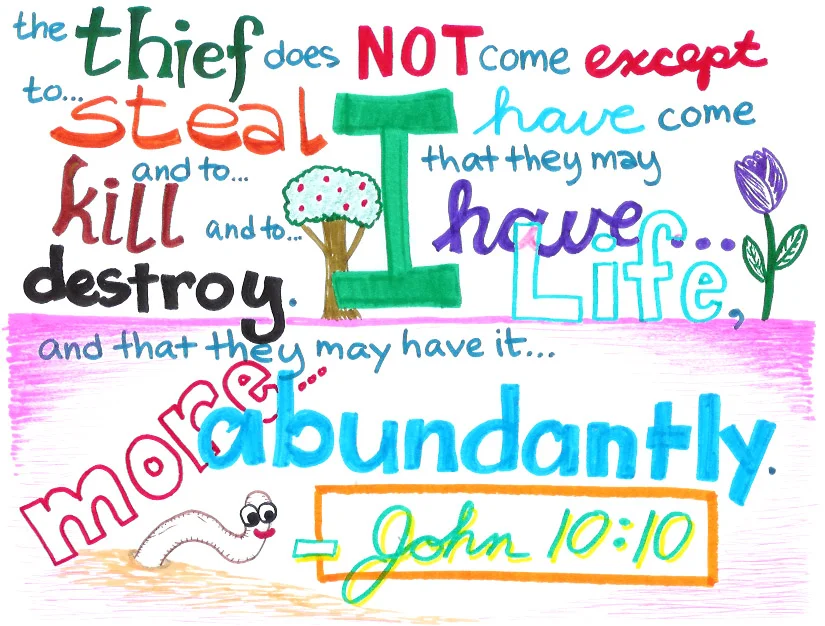 the thief does NOT come except
to... steal
and to...
kill and to...
destroy.
I have come
that they may
have...
Life,
and that they may have it...
more...
abundantly.
- John 10:10